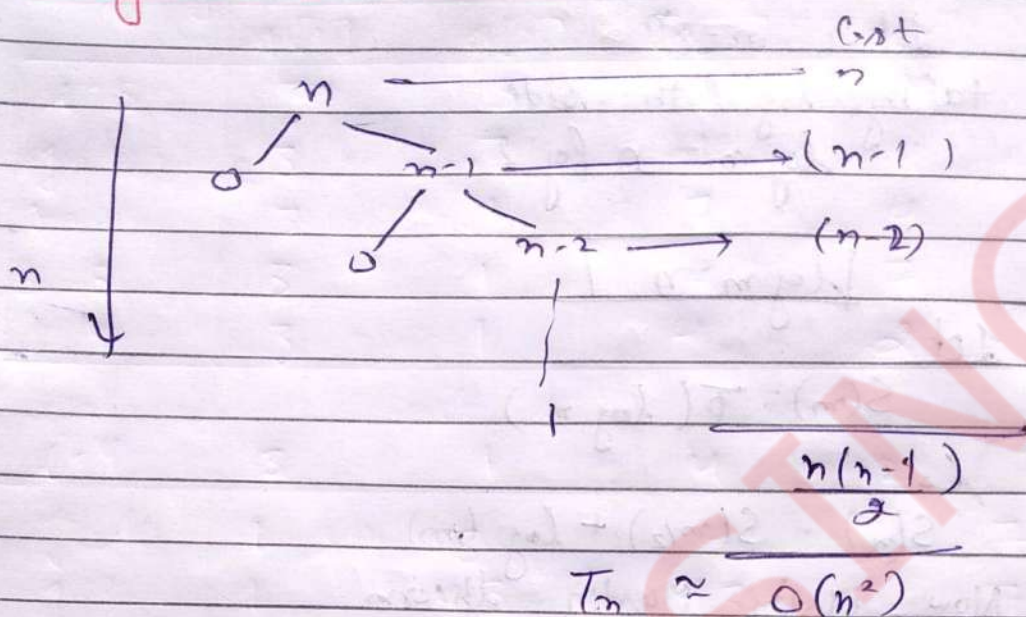 Cost
n n
0 n-1 (n-1)
0 n-2 (n-2)
n
1
n(n-1)
2
Tn ≈ O(n²)